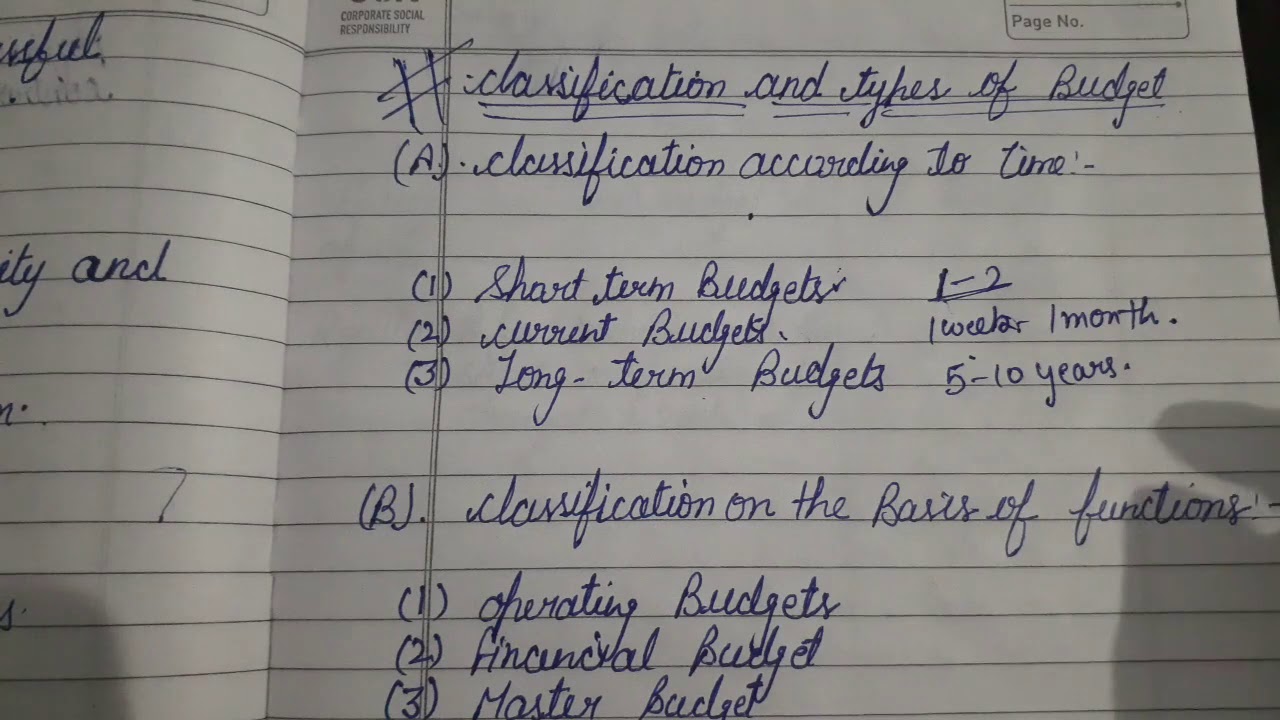 CORPORATE SOCIAL
RESPONSIBILITY
Page No.
# :classification and types of Budget
(A). classification according to time:-
(1) Short term Budgets 1-2
(2) current Budgets. 1 week 1 month.
(3) Long-term Budgets 5-10 years.
(B). classification on the Basis of functions:-
(1) operating Budgets
(2) financial Budget
(3) Master Budget
ity and